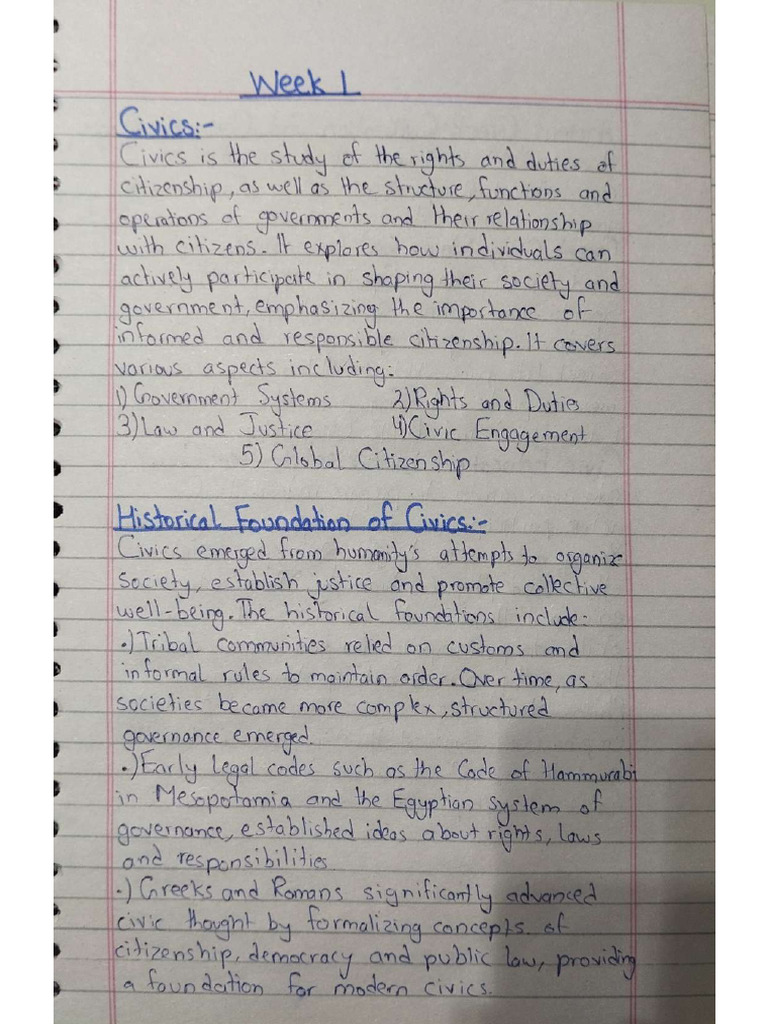 Week 1
Civics:-
Civics is the study of the rights and duties of
citizenship, as well as the structure, functions and
operatons of governments and their relationship
with citizens. It explores how individuals can
actively participate in shaping their society and
government, emphasizing the importance of
informed and responsible citizenship. It covers
various aspects including:
1) Government Systems 2) Rights and Duties
3) Law and Justice 4) Civic Engagement
5) Global Citizenship
Historical Foundation of Civics:-
Civics emerged from humanity's attempts to organize
society, establish justice and promote collective
well-being. The historical foundations include:
.) Tribal communities relied on customs and
informal rules to maintain order. Over time, as
societies became more complex, structured
governance emerged.
.) Early legal codes such as the Code of Hammurabi
in Mesopotamia and the Egyptian system of
governance, established ideas about rights, laws
and responsibilities
.) Greeks and Romans significantly advanced
civic thought by formalizing concepts of
citizenship, democracy and public law, providing
a foundation for modern civics.